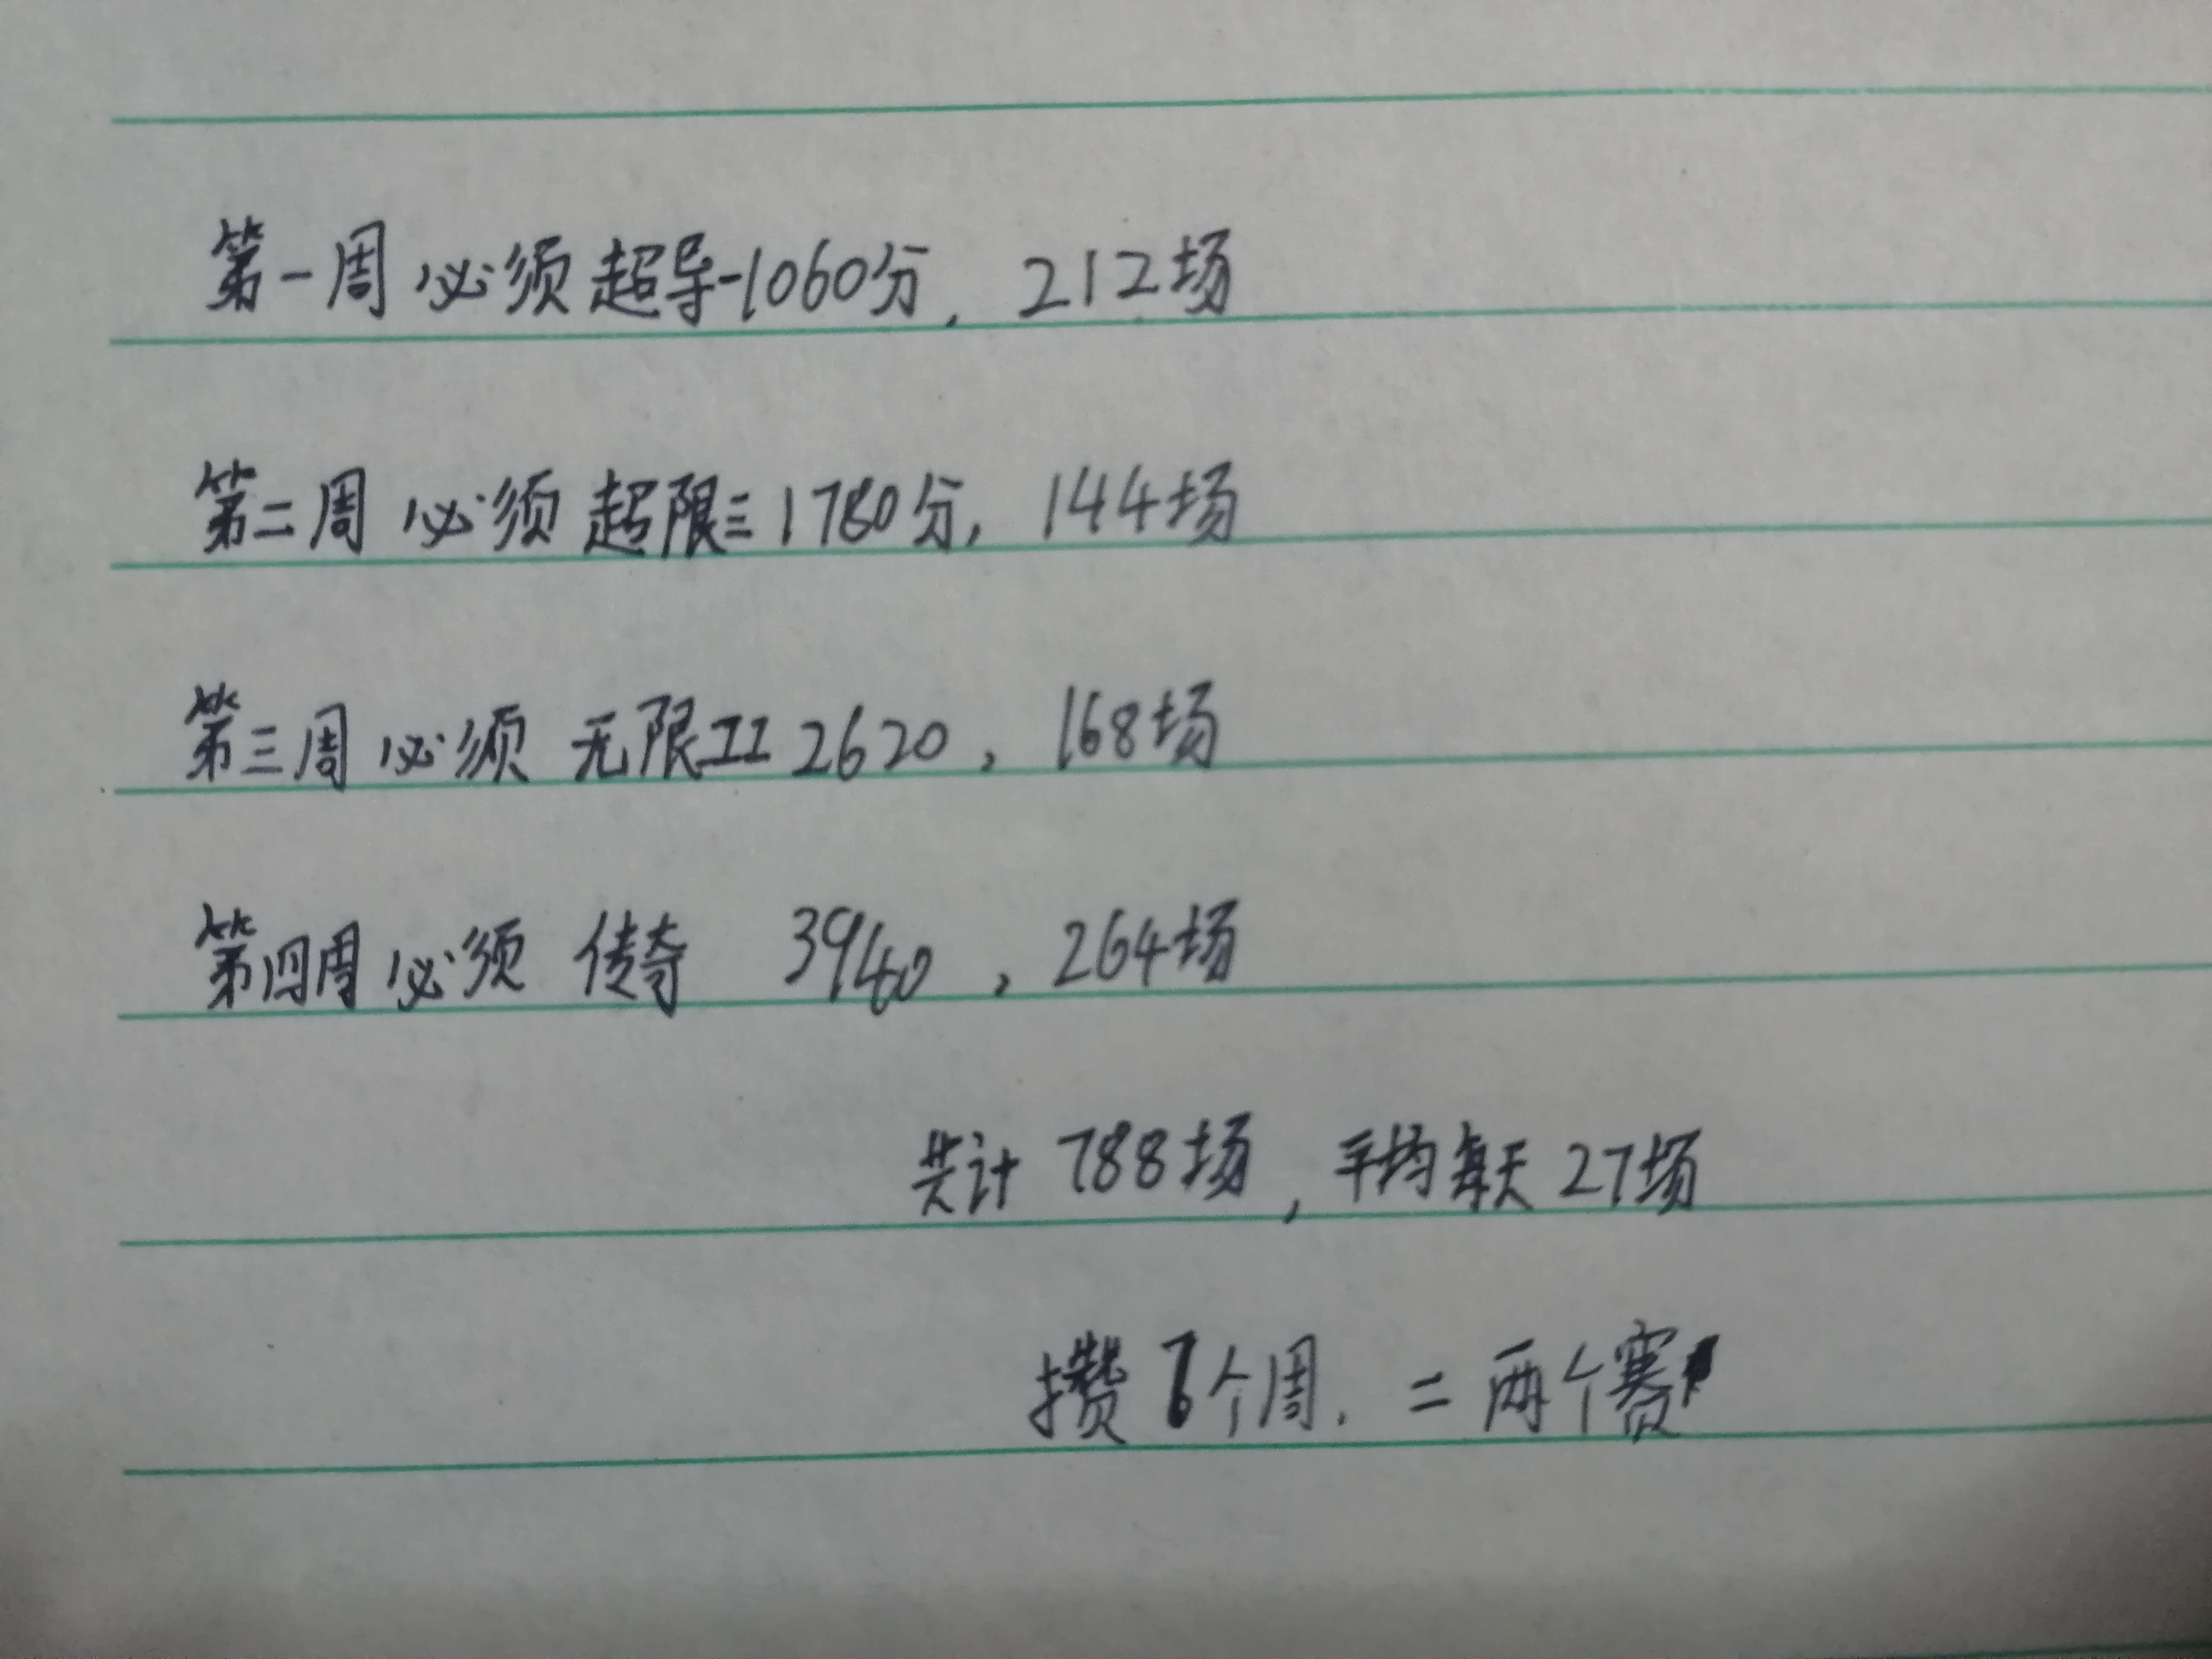 第一周必须超导-1060分，212场
第二周必须超限三1780分，144场
第三周必须无限II2620，168场
第四周必须传奇 3940，264场
共计788场，平均每天27场
攒个周．=两个赛